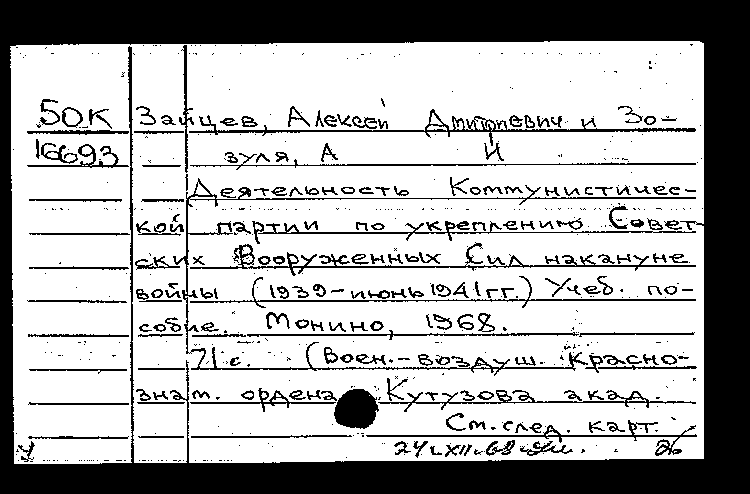 50К Зайцев, Алексей Дмитриевич и Зо-
16693 зуля, А И
Деятельность Коммунистичес-
кой партии по укреплению Совет-
ских Вооруженных Сил накануне
войны (1939-июнь 1941 гг.) Учеб. по-
собие. Монино, 1968.
71 с. (Воен.-воздуш. Красно-
знам. ордена Кутузова акад.
См. след. карт.
24.XII.68